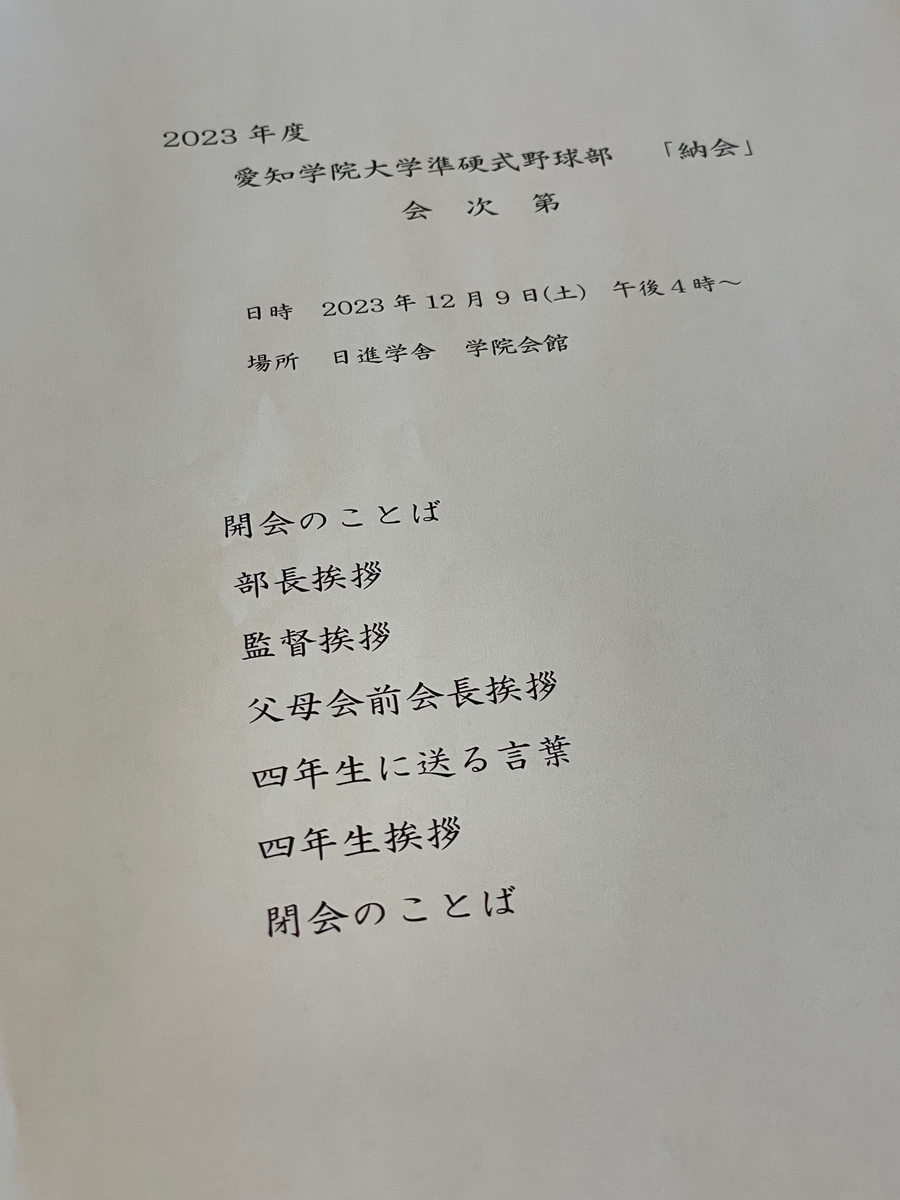 2023年度
愛知学院大学準硬式野球部 「納会」
会 次 第
日時 2023年12月9日(土) 午後4時～
場所 日進学舎 学院会館
開会のことば
部長挨拶
監督挨拶
父母会前会長挨拶
四年生に送る言葉
四年生挨拶
閉会のことば